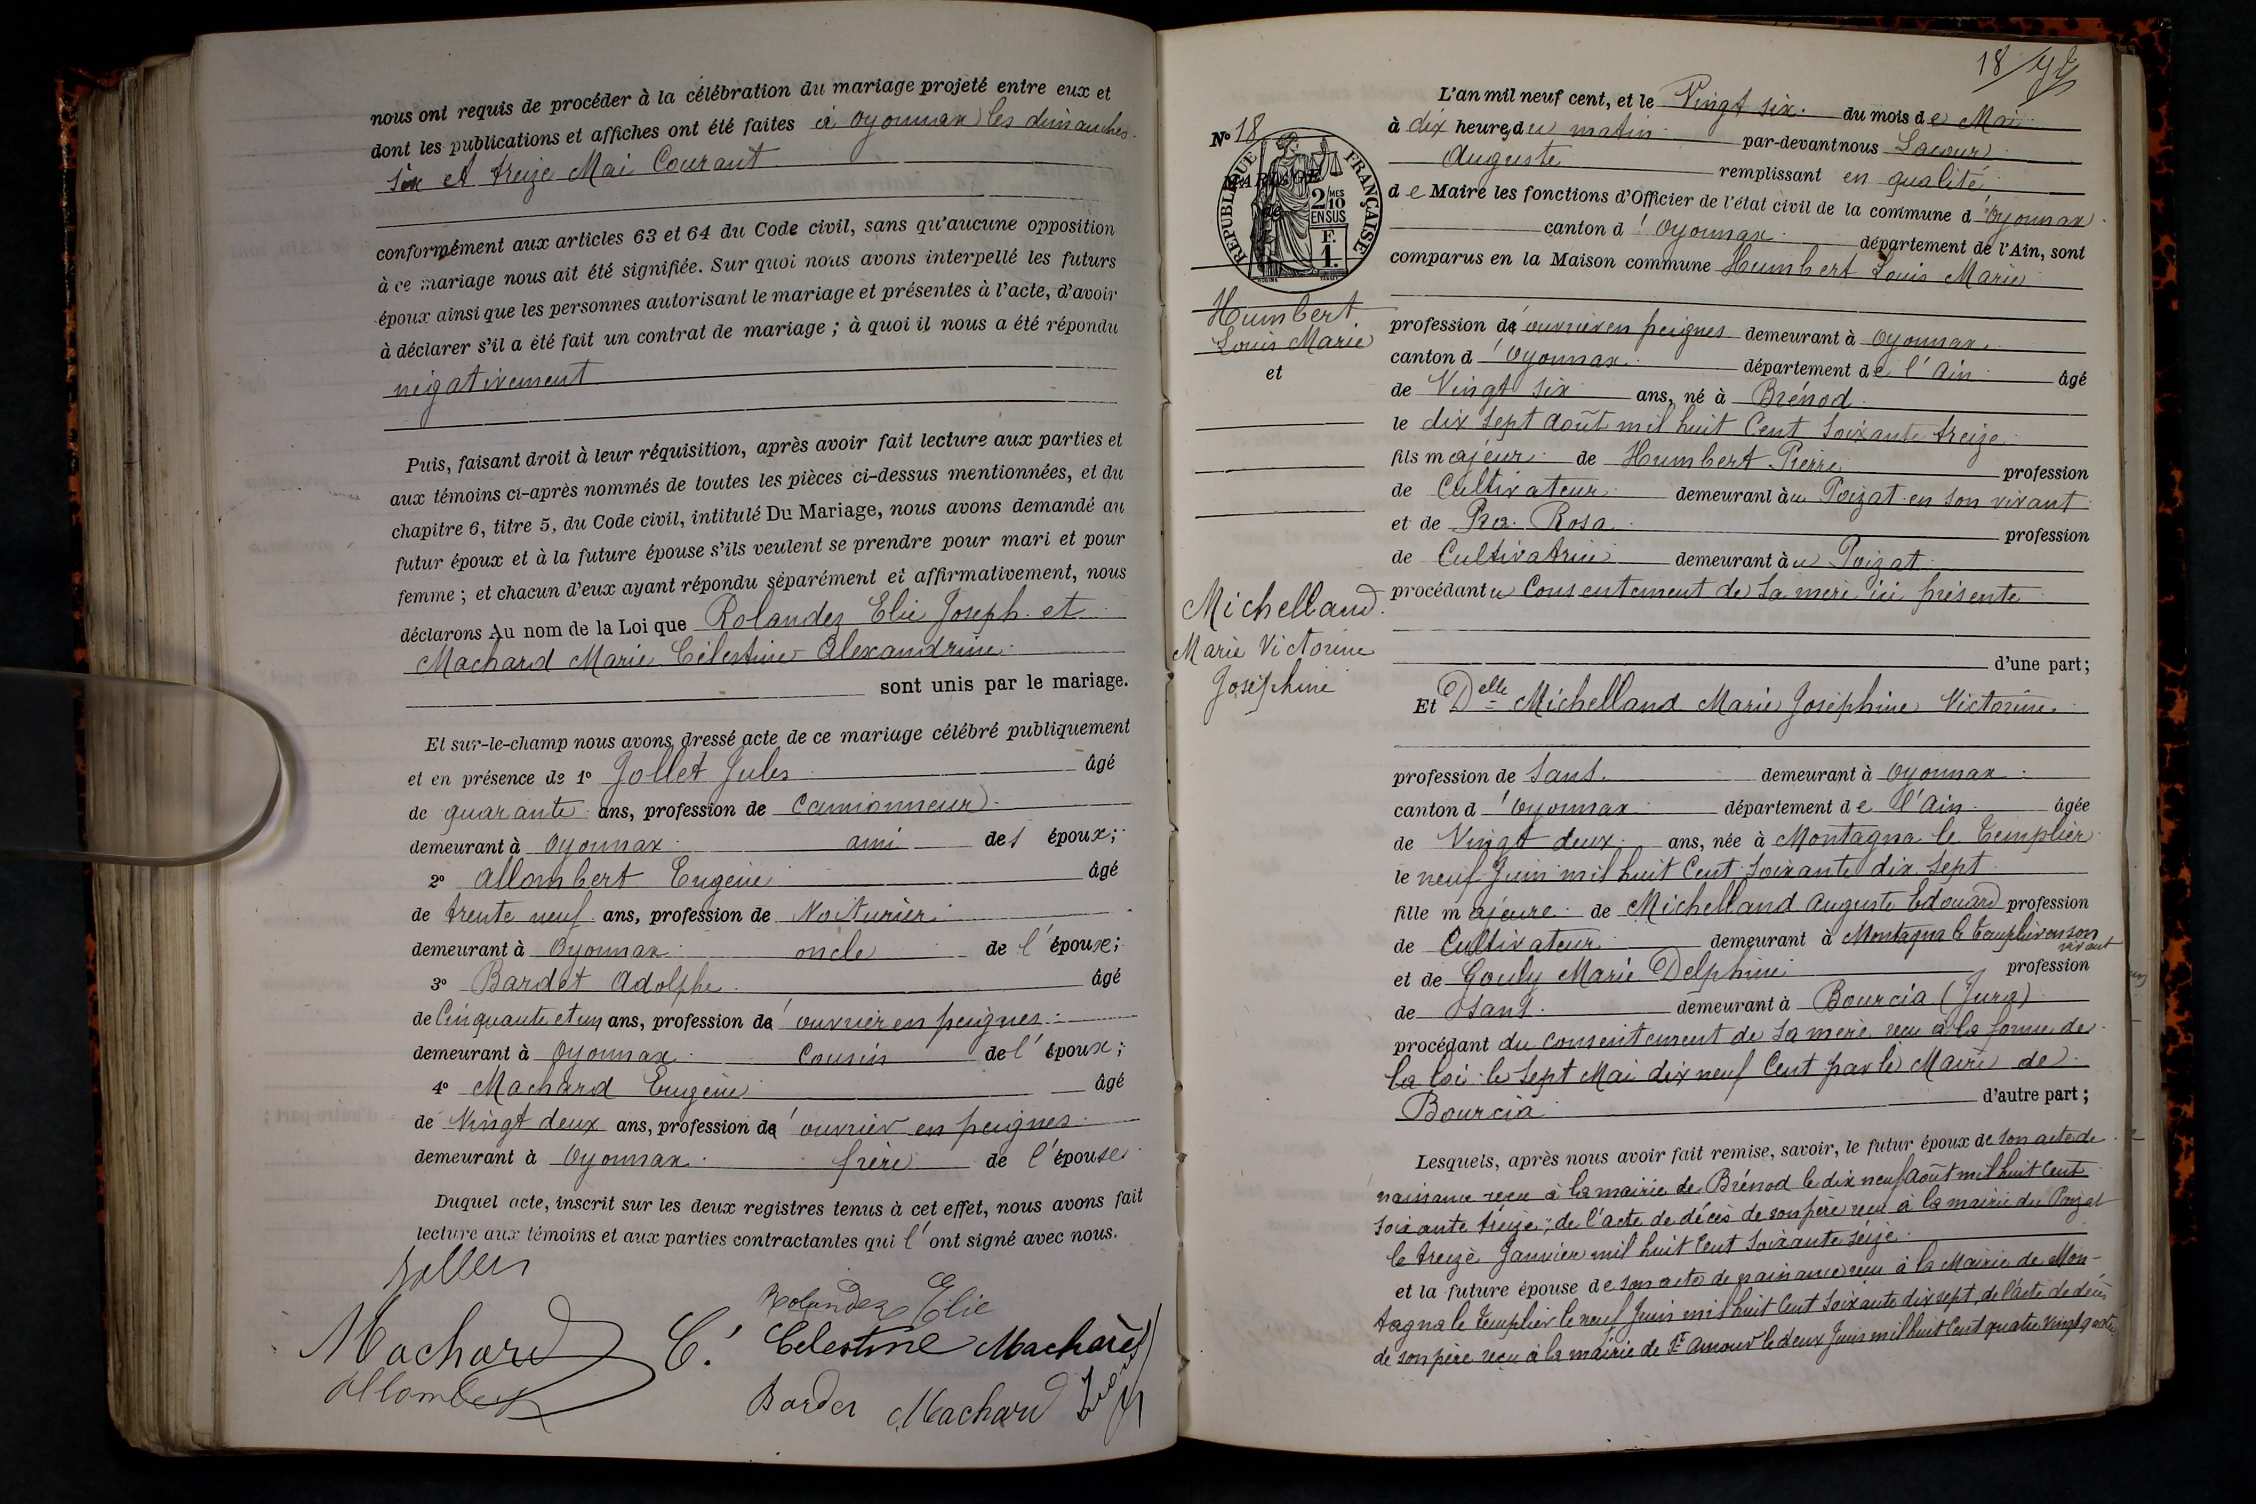 nous ont requis de procéder à la célébration du mariage projeté entre eux et
dont les publications et affiches ont été faites à Oyonnax les dimanches
six et treize Mai Courant
conformément aux articles 63 et 64 du Code civil, sans qu'aucune opposition
à ce mariage nous ait été signifiée. Sur quoi nous avons interpellé les futurs
époux ainsi que les personnes autorisant le mariage et présentes à l'acte, d'avoir
à déclarer s'il a été fait un contrat de mariage ; à quoi il nous a été répondu
négativement
Puis, faisant droit à leur réquisition, après avoir fait lecture aux parties et
aux témoins ci-après nommés de toutes les pièces ci-dessus mentionnées, et du
chapitre 6, titre 5, du Code civil, intitulé Du Mariage, nous avons demandé au
futur époux et à la future épouse s'ils veulent se prendre pour mari et pour
femme ; et chacun d'eux ayant répondu séparément et affirmativement, nous
déclarons Au nom de la Loi que Rolandez Elie Joseph et
Machard Marie Célestine Alexandrine
sont unis par le mariage.
Et sur-le-champ nous avons dressé acte de ce mariage célébré publiquement
et en présence de 1° Jollet Jules âgé
de quarante ans, profession de Camionneur
demeurant à Oyonnax ami des époux ;
2° Allombert Eugène âgé
de trente neuf ans, profession de Voiturier
demeurant à Oyonnax oncle de l'épouse ;
3° Bardet Adolphe âgé
de Cinquante et un ans, profession d'ouvrier en peignes
demeurant à Oyonnax Cousin de l'époux ;
4° Machard Eugène âgé
de Vingt deux ans, profession d'ouvrier en peignes
demeurant à Oyonnax frère de l'épouse
Duquel acte, inscrit sur les deux registres tenus à cet effet, nous avons fait
lecture aux témoins et aux parties contractantes qui l'ont signé avec nous.
Rolandez Elie
Machard C. Celestine Machard
Allombert
Bardet Machard
18
N° 18
MARIAGE
de
REPUBLIQUE FRANÇAISE
2 MES 10
EN SUS
F.
1.
Humbert
Louis Marie
et
Michelland
Marie Victorine
Joséphine
L'an mil neuf cent, et le Vingt six du mois de Mai
à dix heures du matin par-devant nous Lacour
Auguste remplissant en qualité
de Maire les fonctions d'Officier de l'état civil de la commune d'Oyonnax
canton d'Oyonnax département de l'Ain, sont
comparus en la Maison commune Humbert Louis Marie
profession d'ouvrier en peignes demeurant à Oyonnax
canton d'Oyonnax département de l'Ain âgé
de Vingt six ans, né à Brénod
le dix sept Août mil huit Cent Soixante treize
fils majeur de Humbert Pierre profession
de Cultivateur demeurant au Poizat en son vivant
et de Rosa profession
de Cultivatrice demeurant au Poizat
procédant du Consentement de sa mère ici présente
d'une part ;
Et Delle Michelland Marie Joséphine Victorine
profession de Sans demeurant à Oyonnax
canton d'Oyonnax département de l'Ain âgée
de Vingt deux ans, née à Montagna le Templier
le neuf Juin mil huit Cent Soixante dix sept
fille majeure de Michelland Auguste Edouard profession
de Cultivateur demeurant à Montagna le Templier en son
vivant
et de Gouly Marie Delphine profession
de Sans demeurant à Bourcia (Jura)
procédant du consentement de sa mère reçu à la forme de
la loi le sept Mai dix neuf Cent par le Maire de
Bourcia d'autre part ;
Lesquels, après nous avoir fait remise, savoir, le futur époux de son acte de
naissance reçu à la mairie de Brénod le dix neuf Août mil huit Cent
Soixante treize ; de l'acte de décès de son père reçu à la mairie du Poizat
le treize Janvier mil huit Cent Soixante seize
et la future épouse de son acte de naissance reçu à la Mairie de Mon-
tagna le Templier le neuf Juin mil huit Cent Soixante dix sept, de l'acte de décès
de son père reçu à la mairie de St Amour le deux Juin mil huit Cent quatre Vingt quatre